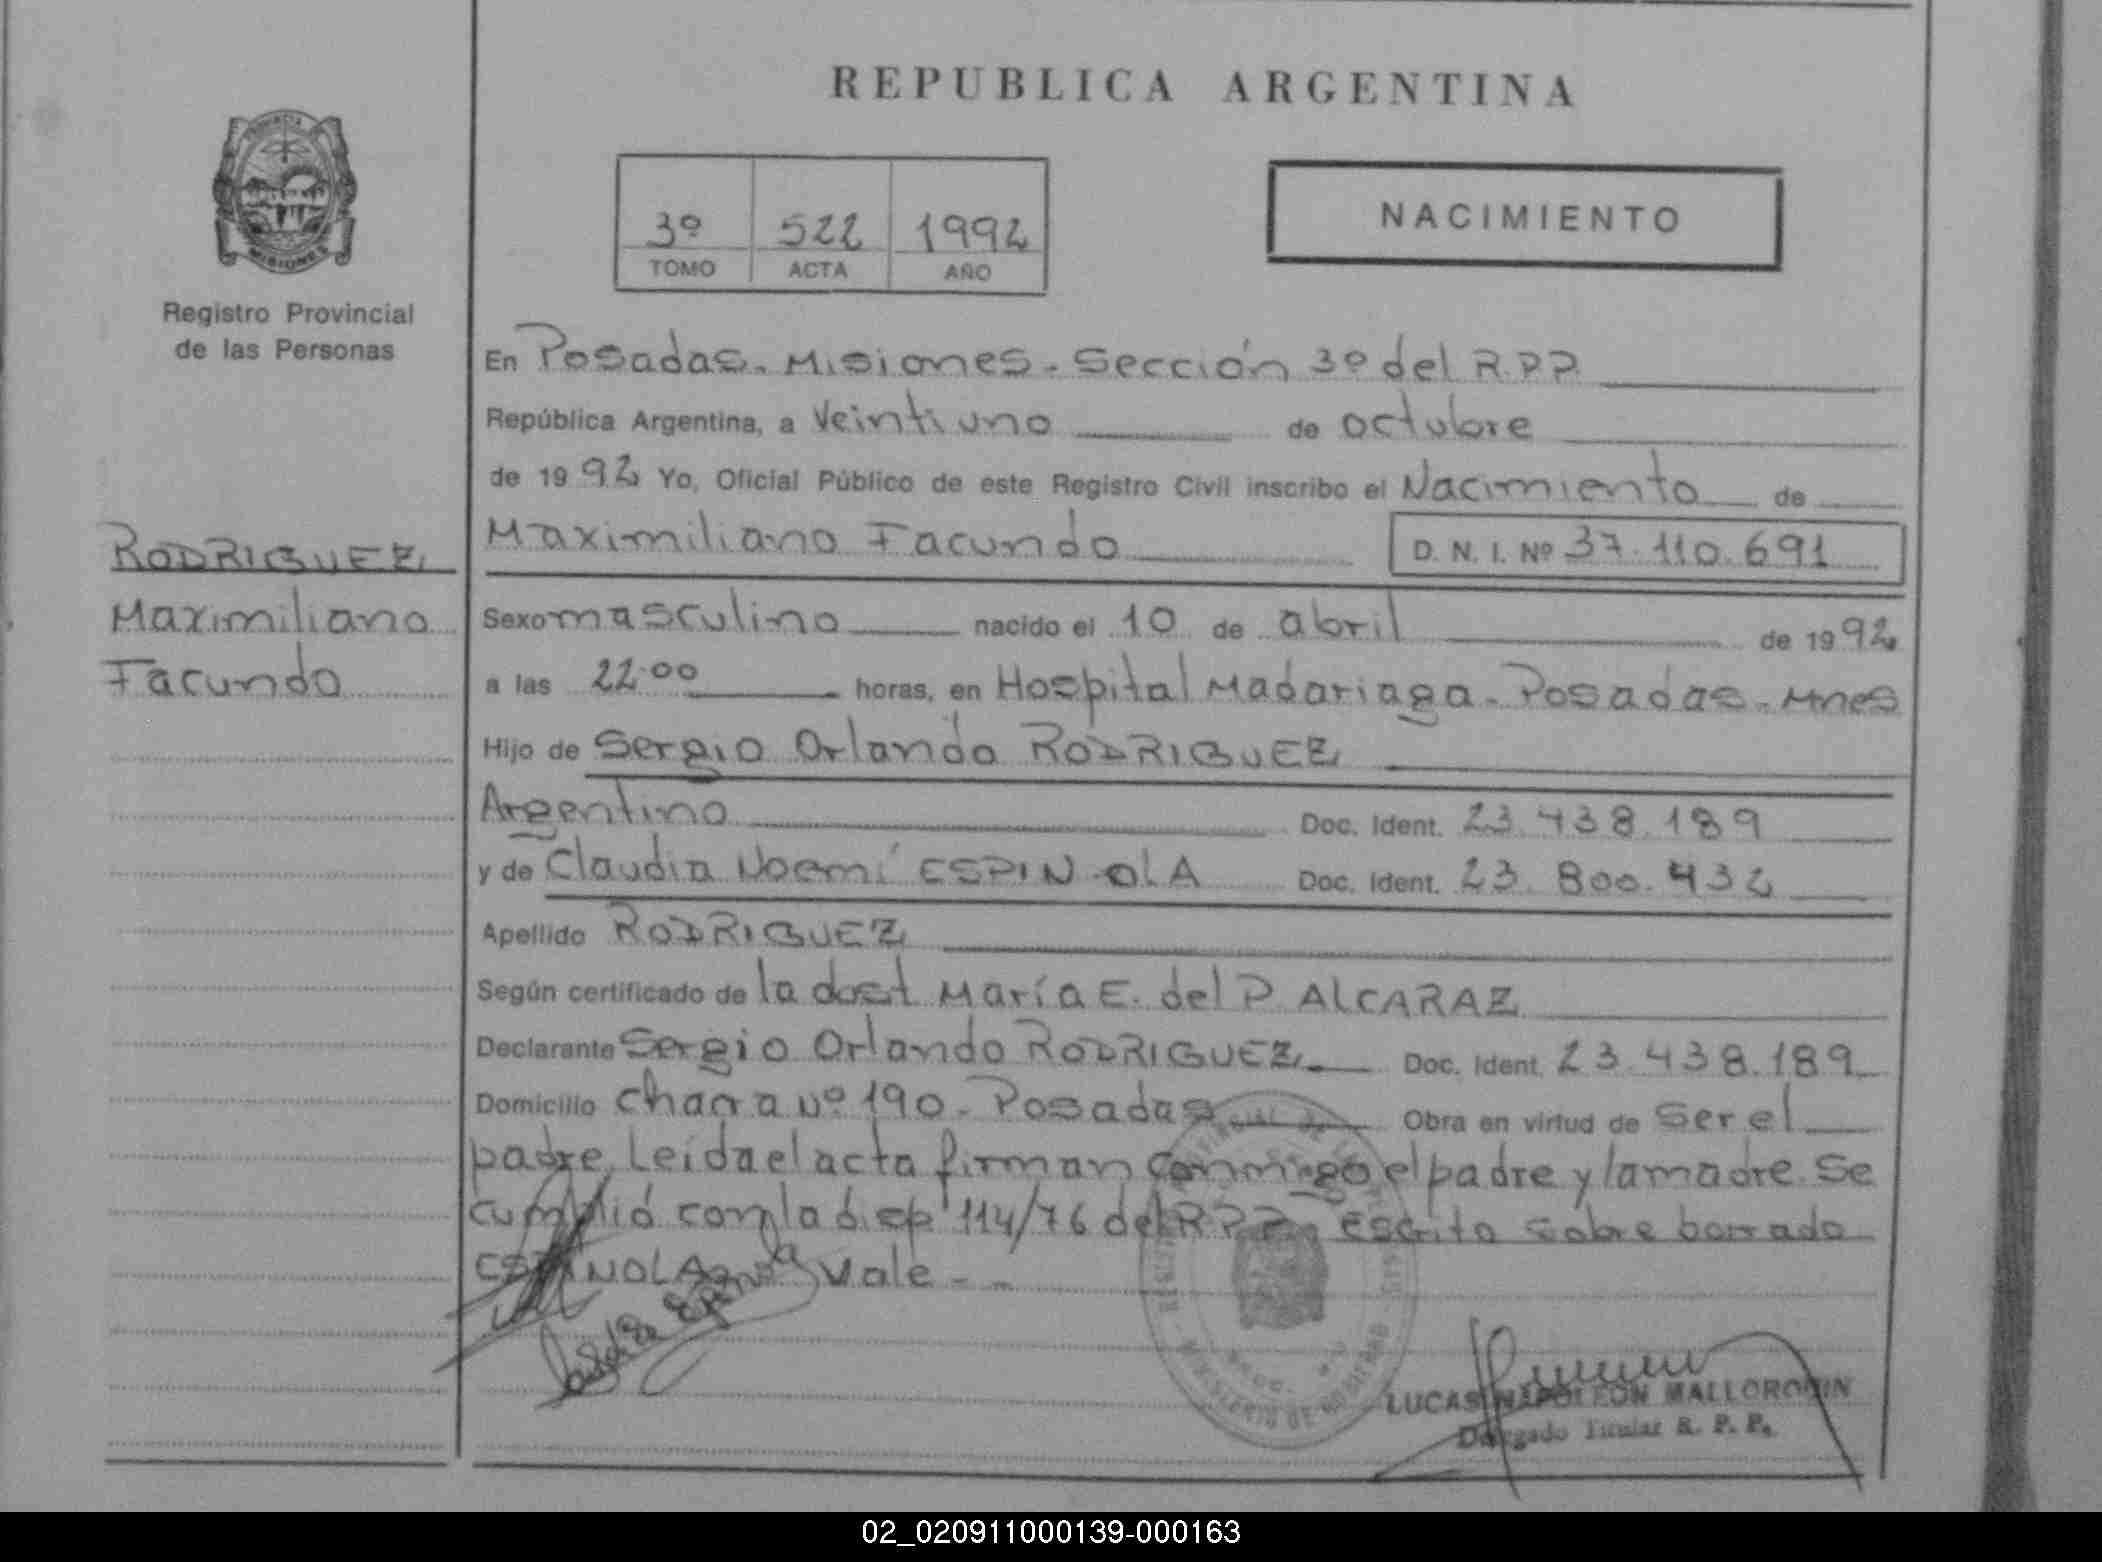 REPUBLICA ARGENTINA
PROVINCIA
MISIONES
Registro Provincial
de las Personas
3º 522 1992
TOMO ACTA AÑO
NACIMIENTO
En Posadas. Misiones. Sección 3º del R.P.P.
República Argentina, a Veintiuno de octubre
de 1992 Yo, Oficial Público de este Registro Civil inscribo el Nacimiento de
Maximiliano Facundo D. N. I. Nº 37.110.691
RODRIGUEZ
Maximiliano
Facundo
Sexo masculino nacido el 10 de abril de 1992
a las 22:00 horas, en Hospital Madariaga. Posadas. Mnes
Hijo de Sergio Orlando RODRIGUEZ
Argentino Doc. Ident. 23.438.189
y de Claudia Noemí ESPINOLA Doc. Ident. 23.800.432
Apellido RODRIGUEZ
Según certificado de la María E. del P. ALCARAZ
Declarante Sergio Orlando RODRIGUEZ Doc. Ident. 23.438.189
Domicilio chacra nº 190. Posadas Obra en virtud de Ser el
padre. Leída el acta firman conmigo el padre y la madre. Se
cumplió con la disp 114/76 del R.P.P. Escrito sobre borrado
ESPINOLA Vale.-
Claudia Espinola
LUCAS NAPOLEON MALLORQUIN
Delegado Titular R. P. P.
02_020911000139-000163